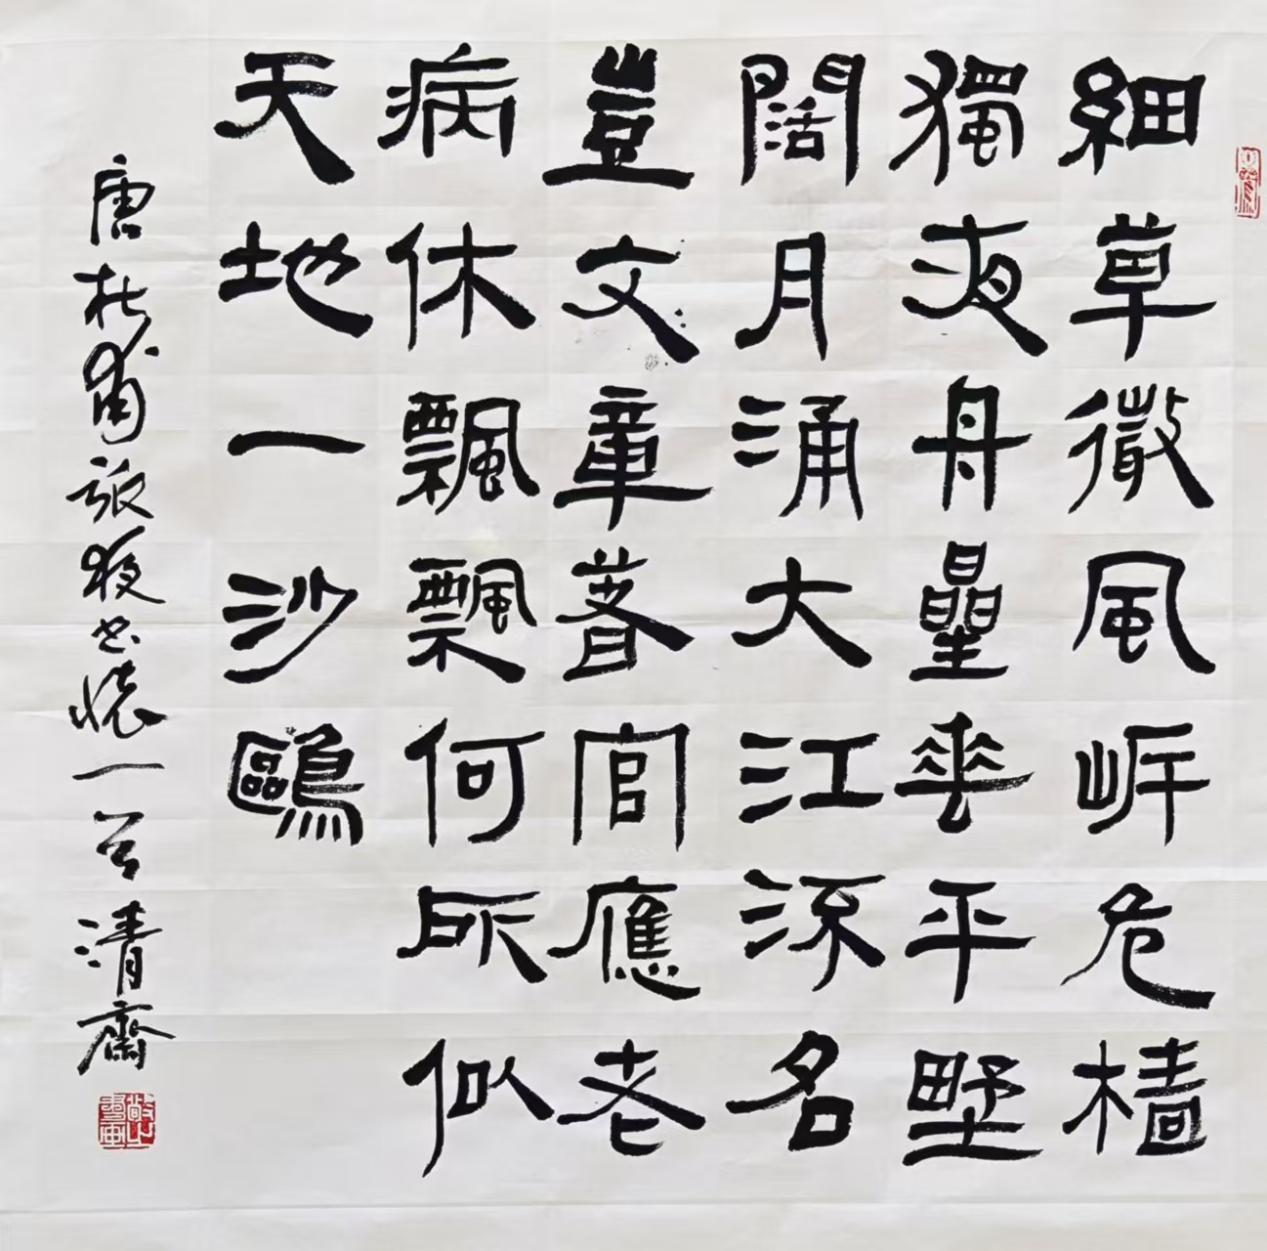 細草微風岸危檣
獨夜舟星垂平野
闊月涌大江流名
豈文章著官應老
病休飄飄何所似
天地一沙鷗
唐杜甫旅夜书懷一首清齋